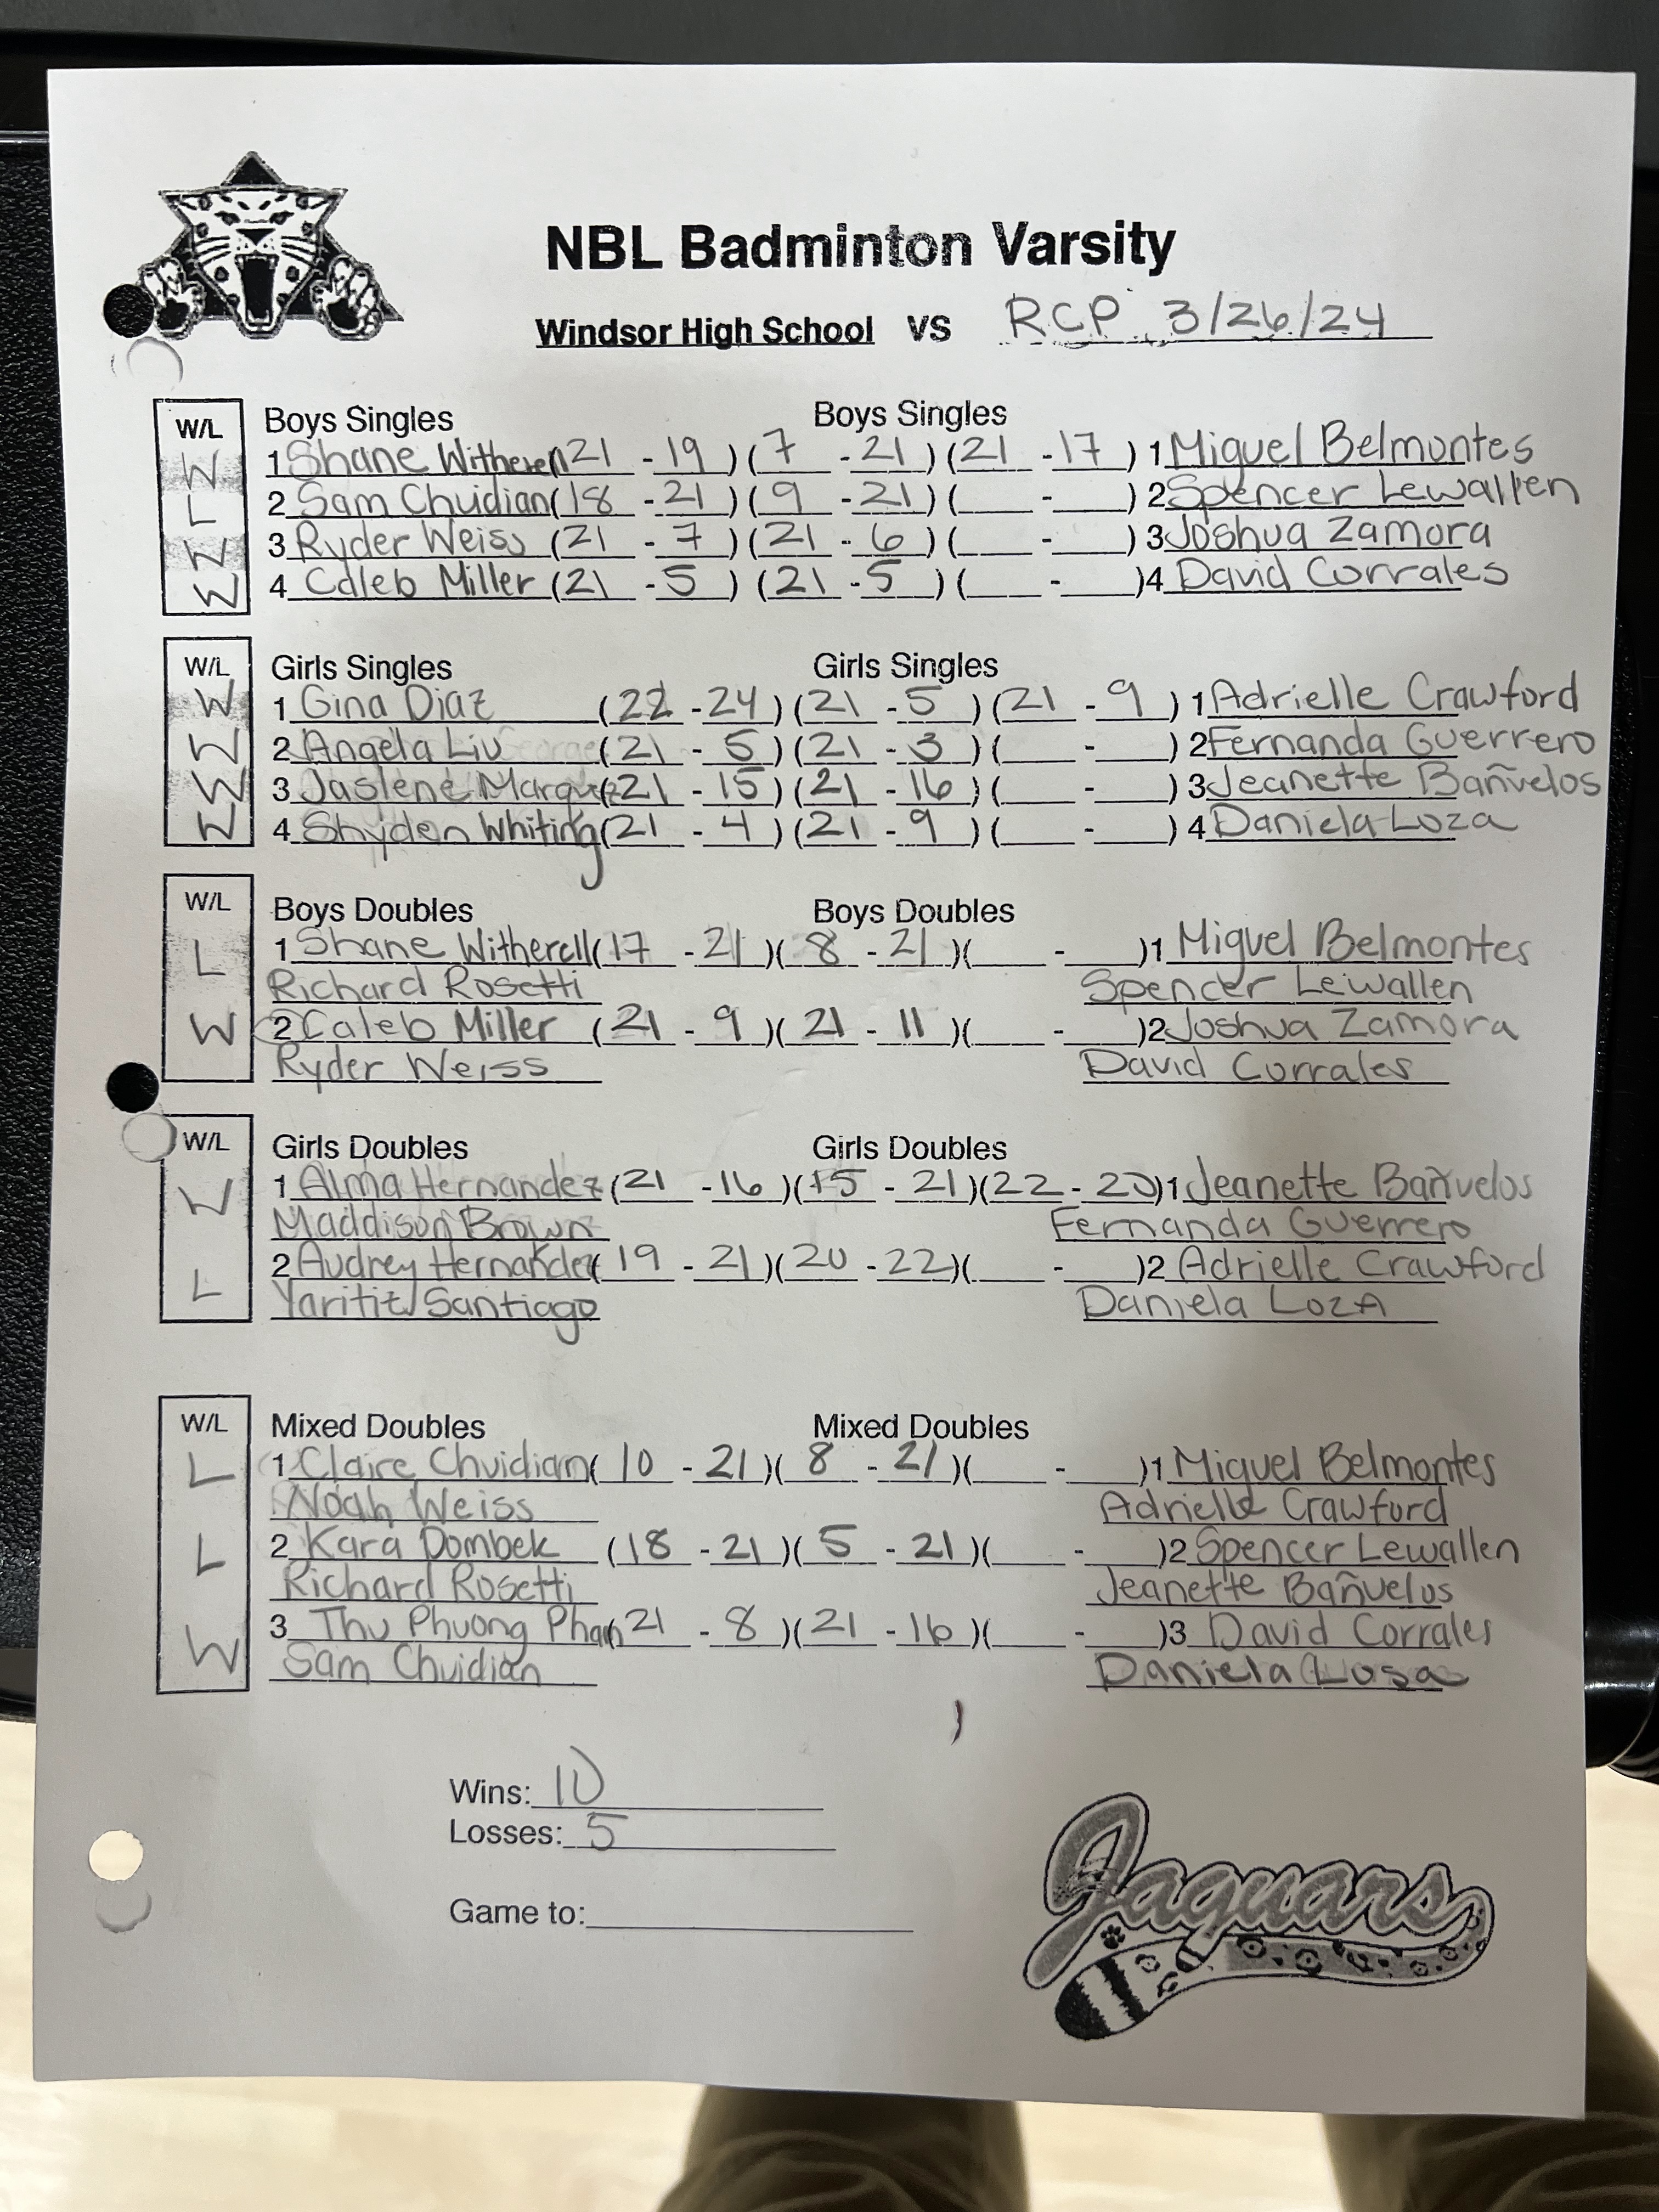 NBL Badminton Varsity
Windsor High School VS RCP 3/26/24
W/L Boys Singles Boys Singles
W 1 Shane Witherell (21 - 19) (7 - 21) (21 - 17) 1 Miguel Belmontes
L 2 Sam Chuidian (18 - 21) (9 - 21) ( - ) 2 Spencer Lewallen
W 3 Ryder Weiss (21 - 7) (21 - 6) ( - ) 3 Joshua Zamora
W 4 Caleb Miller (21 - 5) (21 - 5) ( - ) 4 David Corrales
W/L Girls Singles Girls Singles
W 1 Gina Diaz (22 - 24) (21 - 5) (21 - 9) 1 Adrielle Crawford
W 2 Angela Liu (21 - 5) (21 - 3) ( - ) 2 Fernanda Guerrero
W 3 Jaslene (21 - 15) (21 - 16) ( - ) 3 Jeanette Bañuelos
W 4 Shyden Whiting (21 - 4) (21 - 9) ( - ) 4 Daniela Loza
W/L Boys Doubles Boys Doubles
L 1 Shane Witherell (17 - 21)(8 - 21)( - )1 Miguel Belmontes
Richard Rosetti Spencer Lewallen
W 2 Caleb Miller (21 - 9)(21 - 11)( - )2 Joshua Zamora
Ryder Weiss David Corrales
W/L Girls Doubles Girls Doubles
W 1 Alma Hernandez (21 - 16)(15 - 21)(22 - 20)1 Jeanette Bañuelos
Maddison Brown Fernanda Guerrero
L 2 Audrey Hernandez (19 - 21)(20 - 22)( - )2 Adrielle Crawford
Yaritiz Santiago Daniela LozA
W/L Mixed Doubles Mixed Doubles
L 1 Claire Chuidian (10 - 21)(8 - 21)( - )1 Miguel Belmontes
Noah Weiss Adrielle Crawford
L 2 Kara Dombek (18 - 21)(5 - 21)( - )2 Spencer Lewallen
Richard Rosetti Jeanette Bañuelos
W 3 Thu Phuong Phan (21 - 8)(21 - 16)( - )3 David Corrales
Sam Chuidian Daniela Losa
Wins: 10
Losses: 5
Game to:
Jaguars